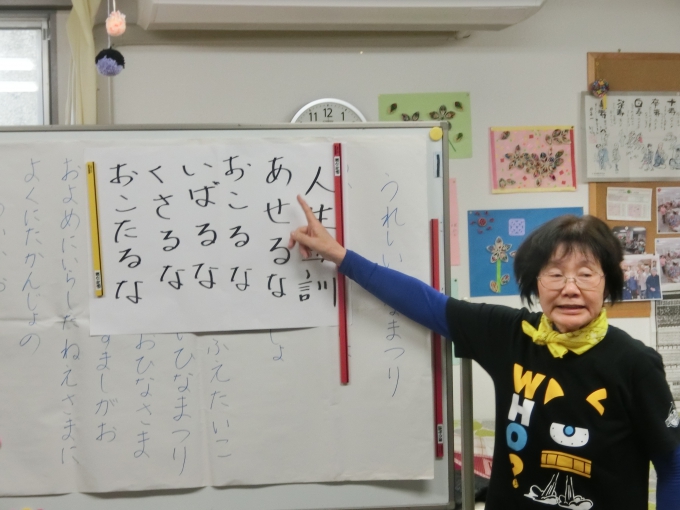 うれしい まつり
人生五訓
あせるな
おこるな
いばるな
くさるな
おこたるな
しょ
ふえたいこ
ひなまつり
おひなさま
すましがお
およめにいらしたねえさまに
よくにたかんじょの
11 12 1
WHO?